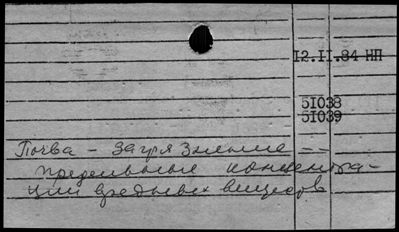 12.II.84 НП
51038
51039
Почва - загрязнение --
предельные концентра-
ции вредных веществ